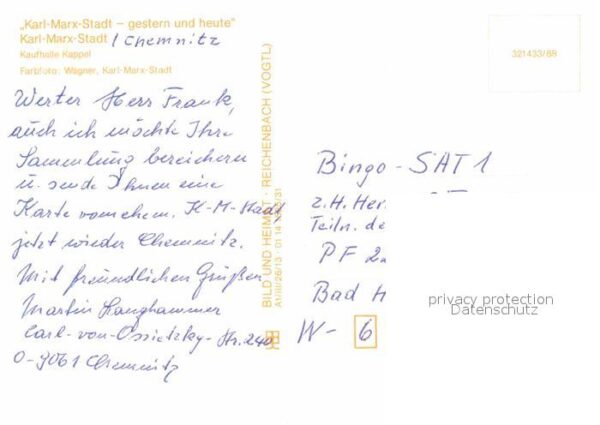 „Karl-Marx-Stadt – gestern und heute"
Karl-Marx-Stadt / Chemnitz
Kaufhalle Kappel
Farbfoto: Wagner, Karl-Marx-Stadt
Werter Herr Frank,
auch ich möchte Ihre
Sammlung bereichern
u. sende Ihnen eine
Karte vom ehem. K-M-Stadt
jetzt wieder Chemnitz.
Mit freundlichen Grüßen
Martin Langhammer
Carl-von-Ossietzky-Str. 240
O-9061 Chemnitz
BILD UND HEIMAT · REICHENBACH (VOGTL)
321433/89
Bingo - SAT 1
z.H. Her
Teiln. de
PF
Bad H
W- 6
privacy protection
Datenschutz